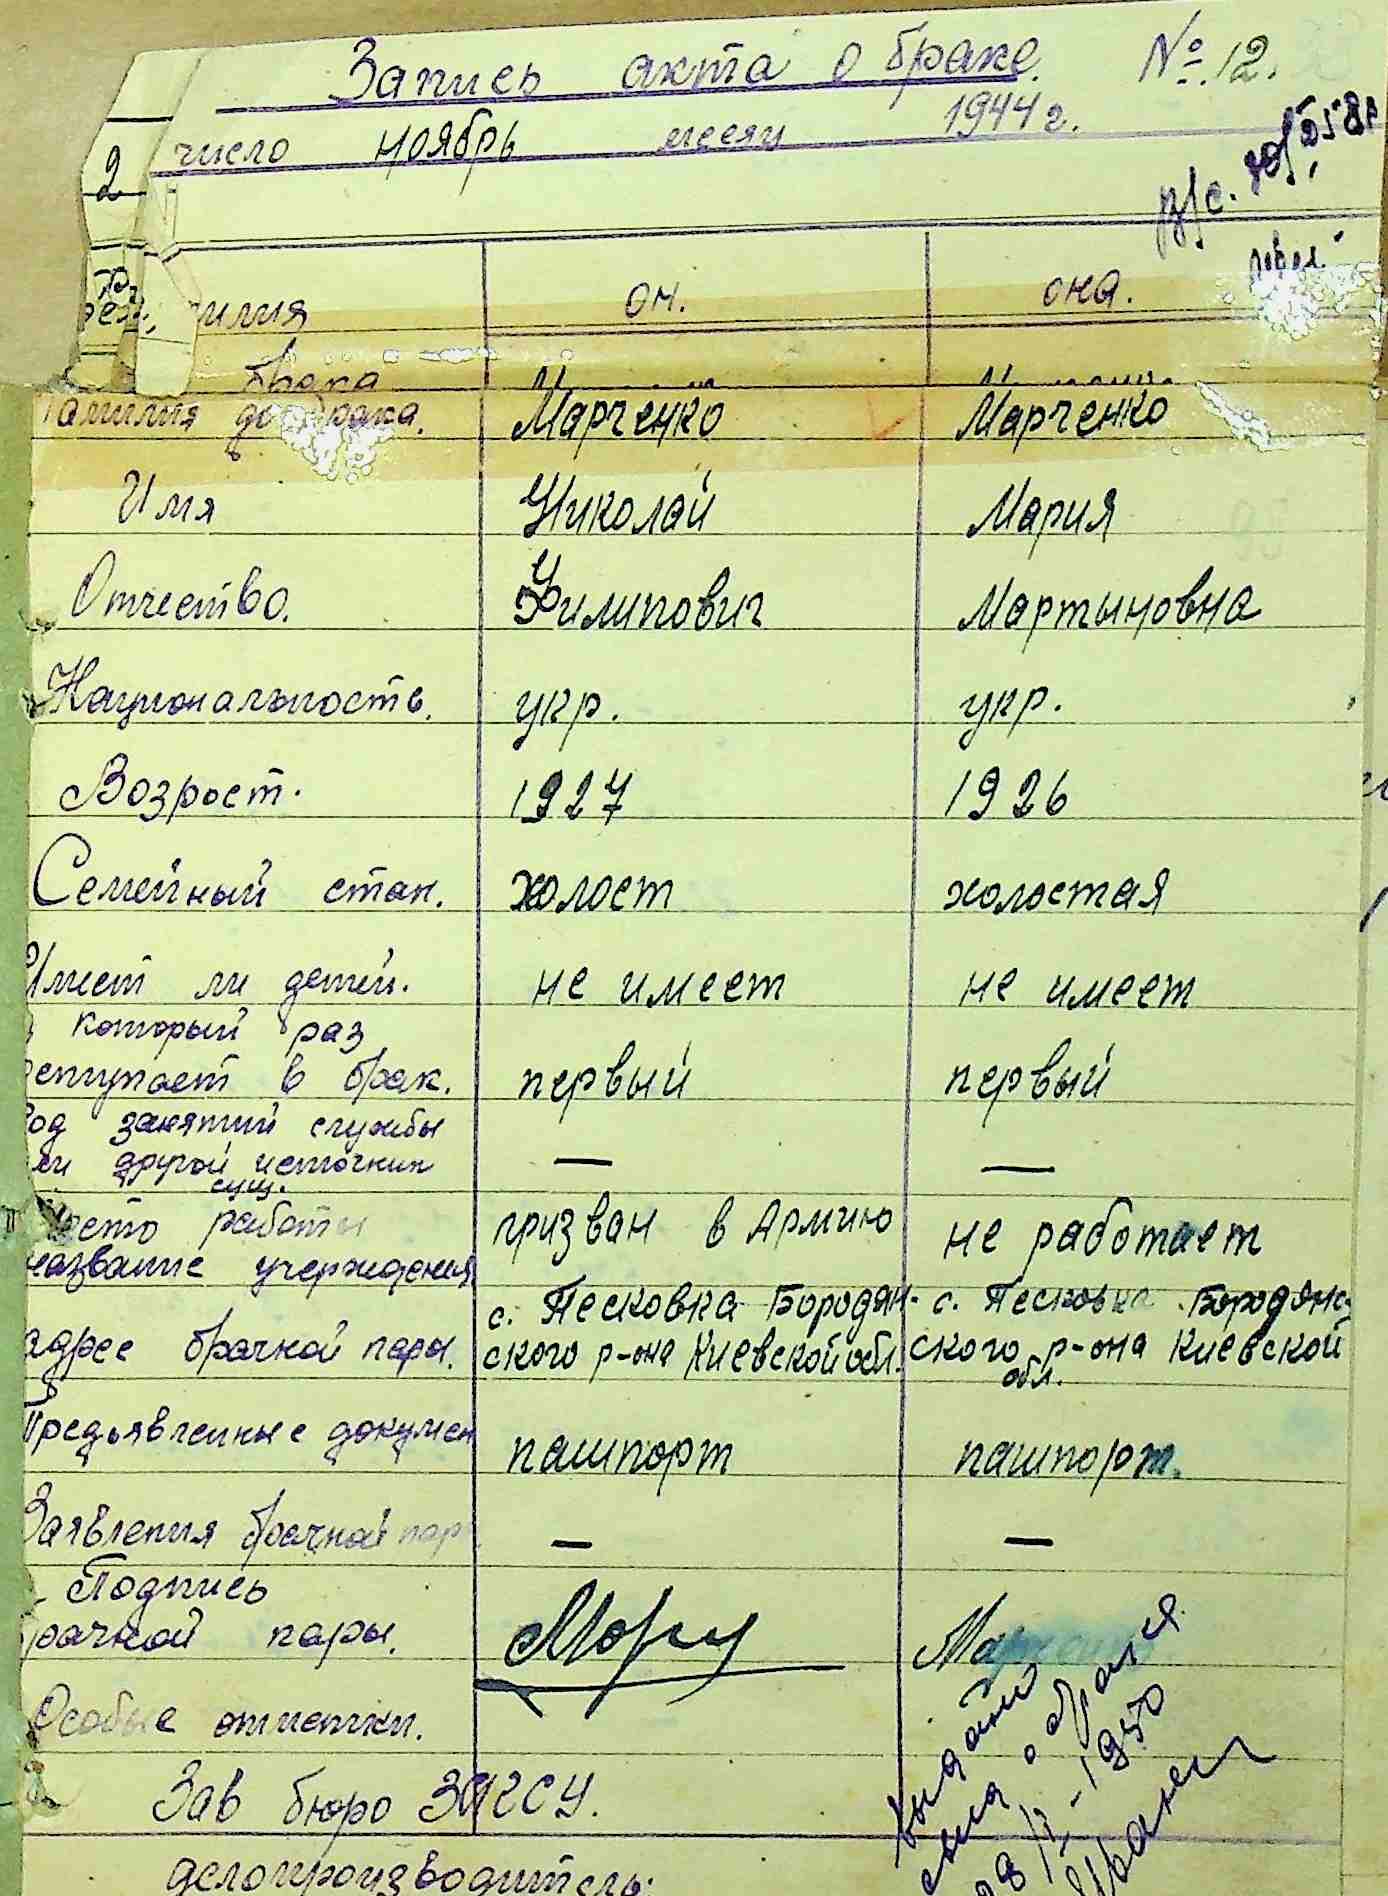 Запись акта о браке. № 12.
2 число ноябрь месяц 1944 г.
он. она.
брака
Фамилия до брака. Марченко Марченко
Имя Николай Мария
Отчество. Филипович Мартыновна
Национальность. укр. укр.
Возрост. 1927 1926
Семейный стан. холост холостая
Имеет ли детей. не имеет не имеет
который раз
вступает в брак. первый первый
Род занятий службы
или другой источник — —
сущ.
Место работы призван в Армию не работает
название учерждения
адрес брачной пары. с. Песковка Бородян- с. Песковка Бородянс-
ского р-она Киевской обл. ского р-она Киевской
обл.
Предъявленные докумен пашпорт пашпорт.
Заявления брачной пар — —
Подпись
брачной пары. Марч
Особые отметки.
Зав бюро ЗАГСУ.
делопроизводитель.
выдано
о браке
1950